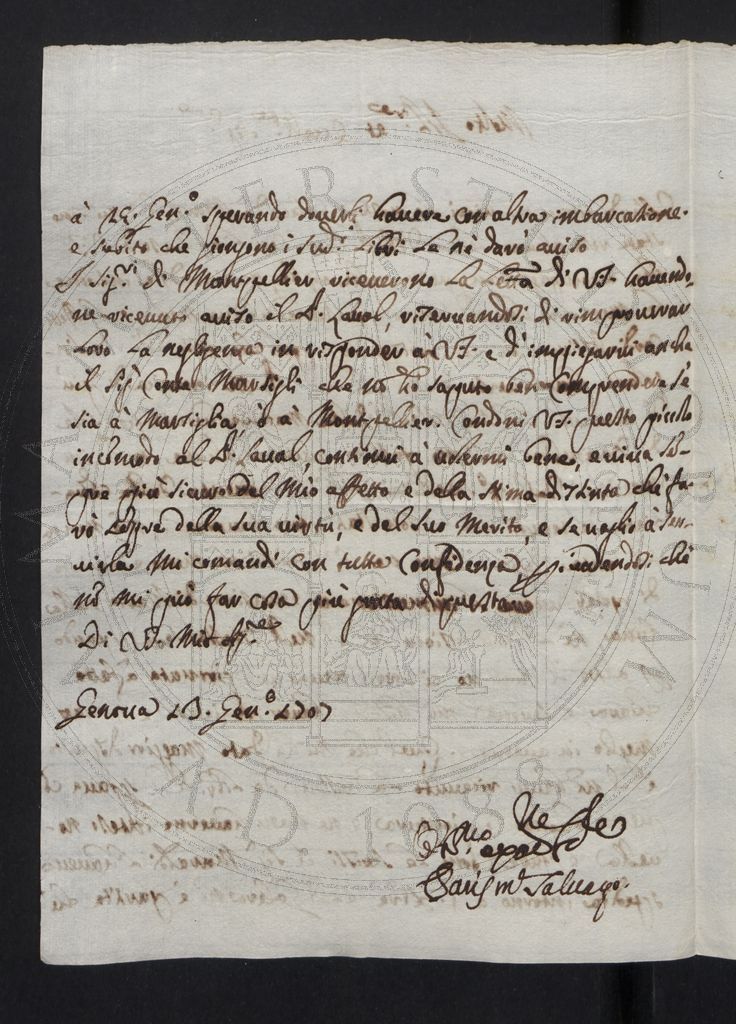 à 15. Gen.º sperando doverli havere con altra imbarcatione.
e subito che giongono i sud.ⁱ libri La nè darò aviso
I Sig.ʳⁱ di Montpellier riceverono La Letta di VS. havendo-
ne ricevuto aviso il P. Laval, riservandosi di rimproverar
Loro La negligenza in risponder à VS. e di impiegarvi anche
il Sig.ʳ Conte Marsigli che nõ ho saputo ben comprendere se
sia à Marsiglia, ò à Montpellier. Condoni VS. questo piccolo
incõmodo al P. Laval, continui à volermi bene, e viva se-
pre più sicuro del Mio affetto e della stima distinta che fa-
rò sepre della sua virtù, e del suo Merito, e se vaglio à ser-
virla Mi comandi con tutta Confidenza, persuadendosi che
nõ mi può far cosa più grata di questa
Di VS. Mio Sig.ʳᵉ
Genova 13. Gen.º 1707
Paris Mª Salvago.